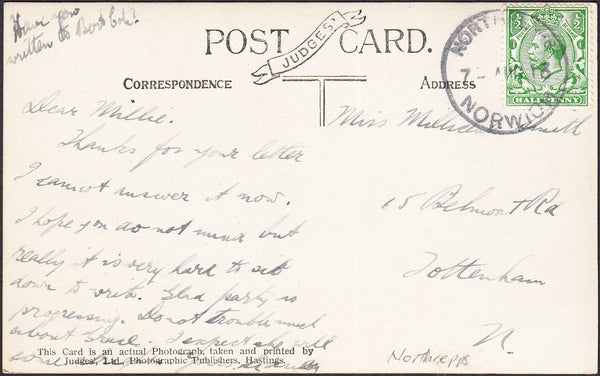 Have you
written to Bert
POST CARD.
JUDGES'
CORRESPONDENCE
ADDRESS
NORWICH
HALFPENNY
Dear Millie.
Thanks for your letter
I cannot answer it now.
I hope you do not mind but
really it is very hard to sit
down to write. Glad party is
progressing. Do not trouble much
about Grace. I expect she will
some
This Card is an actual Photograph, taken and printed by
Judges, Ltd., Photographic Publishers, Hastings.
Miss
15 Belmont Rd
Tottenham
N.
Northrepps